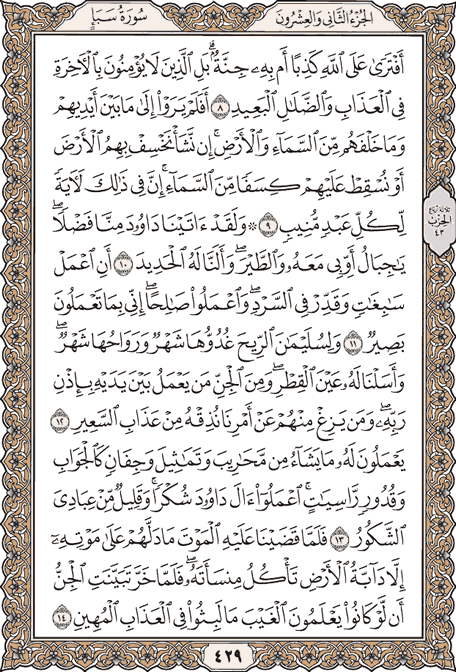 الجزء الثاني والعشرون
سورة سبإ
أَفْتَرَىٰ عَلَى ٱللَّهِ كَذِبًا أَم بِهِۦ جِنَّةٌۢ ۗ بَلِ ٱلَّذِينَ لَا يُؤْمِنُونَ بِٱلْأٓخِرَةِ
فِى ٱلْعَذَابِ وَٱلضَّلَٰلِ ٱلْبَعِيدِ ٨ أَفَلَمْ يَرَوْا۟ إِلَىٰ مَا بَيْنَ أَيْدِيهِمْ
وَمَا خَلْفَهُم مِّنَ ٱلسَّمَآءِ وَٱلْأَرْضِ ۚ إِن نَّشَأْ نَخْسِفْ بِهِمُ ٱلْأَرْضَ
أَوْ نُسْقِطْ عَلَيْهِمْ كِسَفًا مِّنَ ٱلسَّمَآءِ ۚ إِنَّ فِى ذَٰلِكَ لَأٓيَةً
لِّكُلِّ عَبْدٍ مُّنِيبٍ ٩ ۞ وَلَقَدْ ءَاتَيْنَا دَاوُۥدَ مِنَّا فَضْلًا ۖ
يَٰجِبَالُ أَوِّبِى مَعَهُۥ وَٱلطَّيْرَ ۖ وَأَلَنَّا لَهُ ٱلْحَدِيدَ ١٠ أَنِ ٱعْمَلْ
سَٰبِغَٰتٍ وَقَدِّرْ فِى ٱلسَّرْدِ ۖ وَٱعْمَلُوا۟ صَٰلِحًا ۖ إِنِّى بِمَا تَعْمَلُونَ
بَصِيرٌ ١١ وَلِسُلَيْمَٰنَ ٱلرِّيحَ غُدُوُّهَا شَهْرٌ وَرَوَاحُهَا شَهْرٌ ۖ
وَأَسَلْنَا لَهُۥ عَيْنَ ٱلْقِطْرِ ۖ وَمِنَ ٱلْجِنِّ مَن يَعْمَلُ بَيْنَ يَدَيْهِ بِإِذْنِ
رَبِّهِۦ ۖ وَمَن يَزِغْ مِنْهُمْ عَنْ أَمْرِنَا نُذِقْهُ مِنْ عَذَابِ ٱلسَّعِيرِ ١٢
يَعْمَلُونَ لَهُۥ مَا يَشَآءُ مِن مَّحَٰرِيبَ وَتَمَٰثِيلَ وَجِفَانٍ كَٱلْجَوَابِ
وَقُدُورٍ رَّاسِيَٰتٍ ۚ ٱعْمَلُوٓا۟ ءَالَ دَاوُۥدَ شُكْرًا ۚ وَقَلِيلٌ مِّنْ عِبَادِىَ
ٱلشَّكُورُ ١٣ فَلَمَّا قَضَيْنَا عَلَيْهِ ٱلْمَوْتَ مَا دَلَّهُمْ عَلَىٰ مَوْتِهِۦٓ
إِلَّا دَآبَّةُ ٱلْأَرْضِ تَأْكُلُ مِنسَأَتَهُۥ ۖ فَلَمَّا خَرَّ تَبَيَّنَتِ ٱلْجِنُّ
أَن لَّوْ كَانُوا۟ يَعْلَمُونَ ٱلْغَيْبَ مَا لَبِثُوا۟ فِى ٱلْعَذَابِ ٱلْمُهِينِ ١٤
الحزب
٤٣
٤٢٩